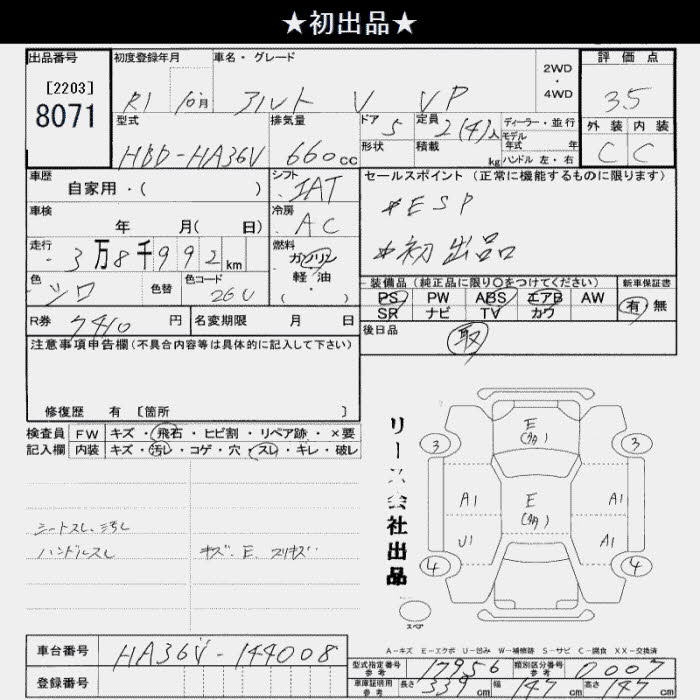 ★初出品★
出品番号 初度登録年月 車名・グレード 2WD・4WD 評価点
[2203]
8071
R1 10月 アルト V VP 3.5
型式 排気量 ドア 定員 ディーラー・並行 外装 内装
HBD-HA36V 660cc 5 2(4)人 モデル年式 年 C C
形状 積載 kg ハンドル 左・右
車歴 シフト セールスポイント(正常に機能するものに限ります)
自家用・( ) IAT *ESP
車検 冷房
年 月( 日) AC *初出品
走行 燃料
3万8千992km ガソリン 軽・油 (・)
色 色替 色コード 装備品(純正品に限り○をつけてください) 新車保証書
シロ 26U PS PW ABS エアB AW 有 無
SR ナビ TV カワ
R券 7410円 名変期限 月 日 後日品
取
注意事項申告欄(不具合内容等は具体的に記入して下さい)
修復歴 有 [箇所 ]
検査員 FW キズ・飛石・ヒビ割・リペア跡・×要
記入欄 内装 キズ・汚れ・コゲ・穴・スレ・キレ・破レ
シートスレ、汚れ
ハンドルスレ キズ.E.スリキズ
リース会社出品
E
3 3
A1 E A1
U1 A1
4 4
スペア
A-キズ E-エクボ U-凹み W-補修跡 S-サビ C-腐食 XX-交換済
車台番号 HA36V-144008
型式指定番号 参考 17956 類別区分番号 参考 0007
登録番号 車庫証明用 参考 長さ 339cm 幅 147cm 高さ 147cm